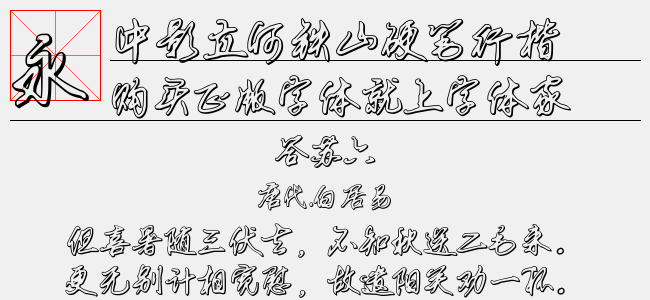 永
中影立何铁山硬笔行楷
购买正版字体就上字体家
答苏六
唐代.白居易
但喜暑随三伏去，不知秋送二毛来。
更无别计相宽慰，故遣阳关劝一杯。